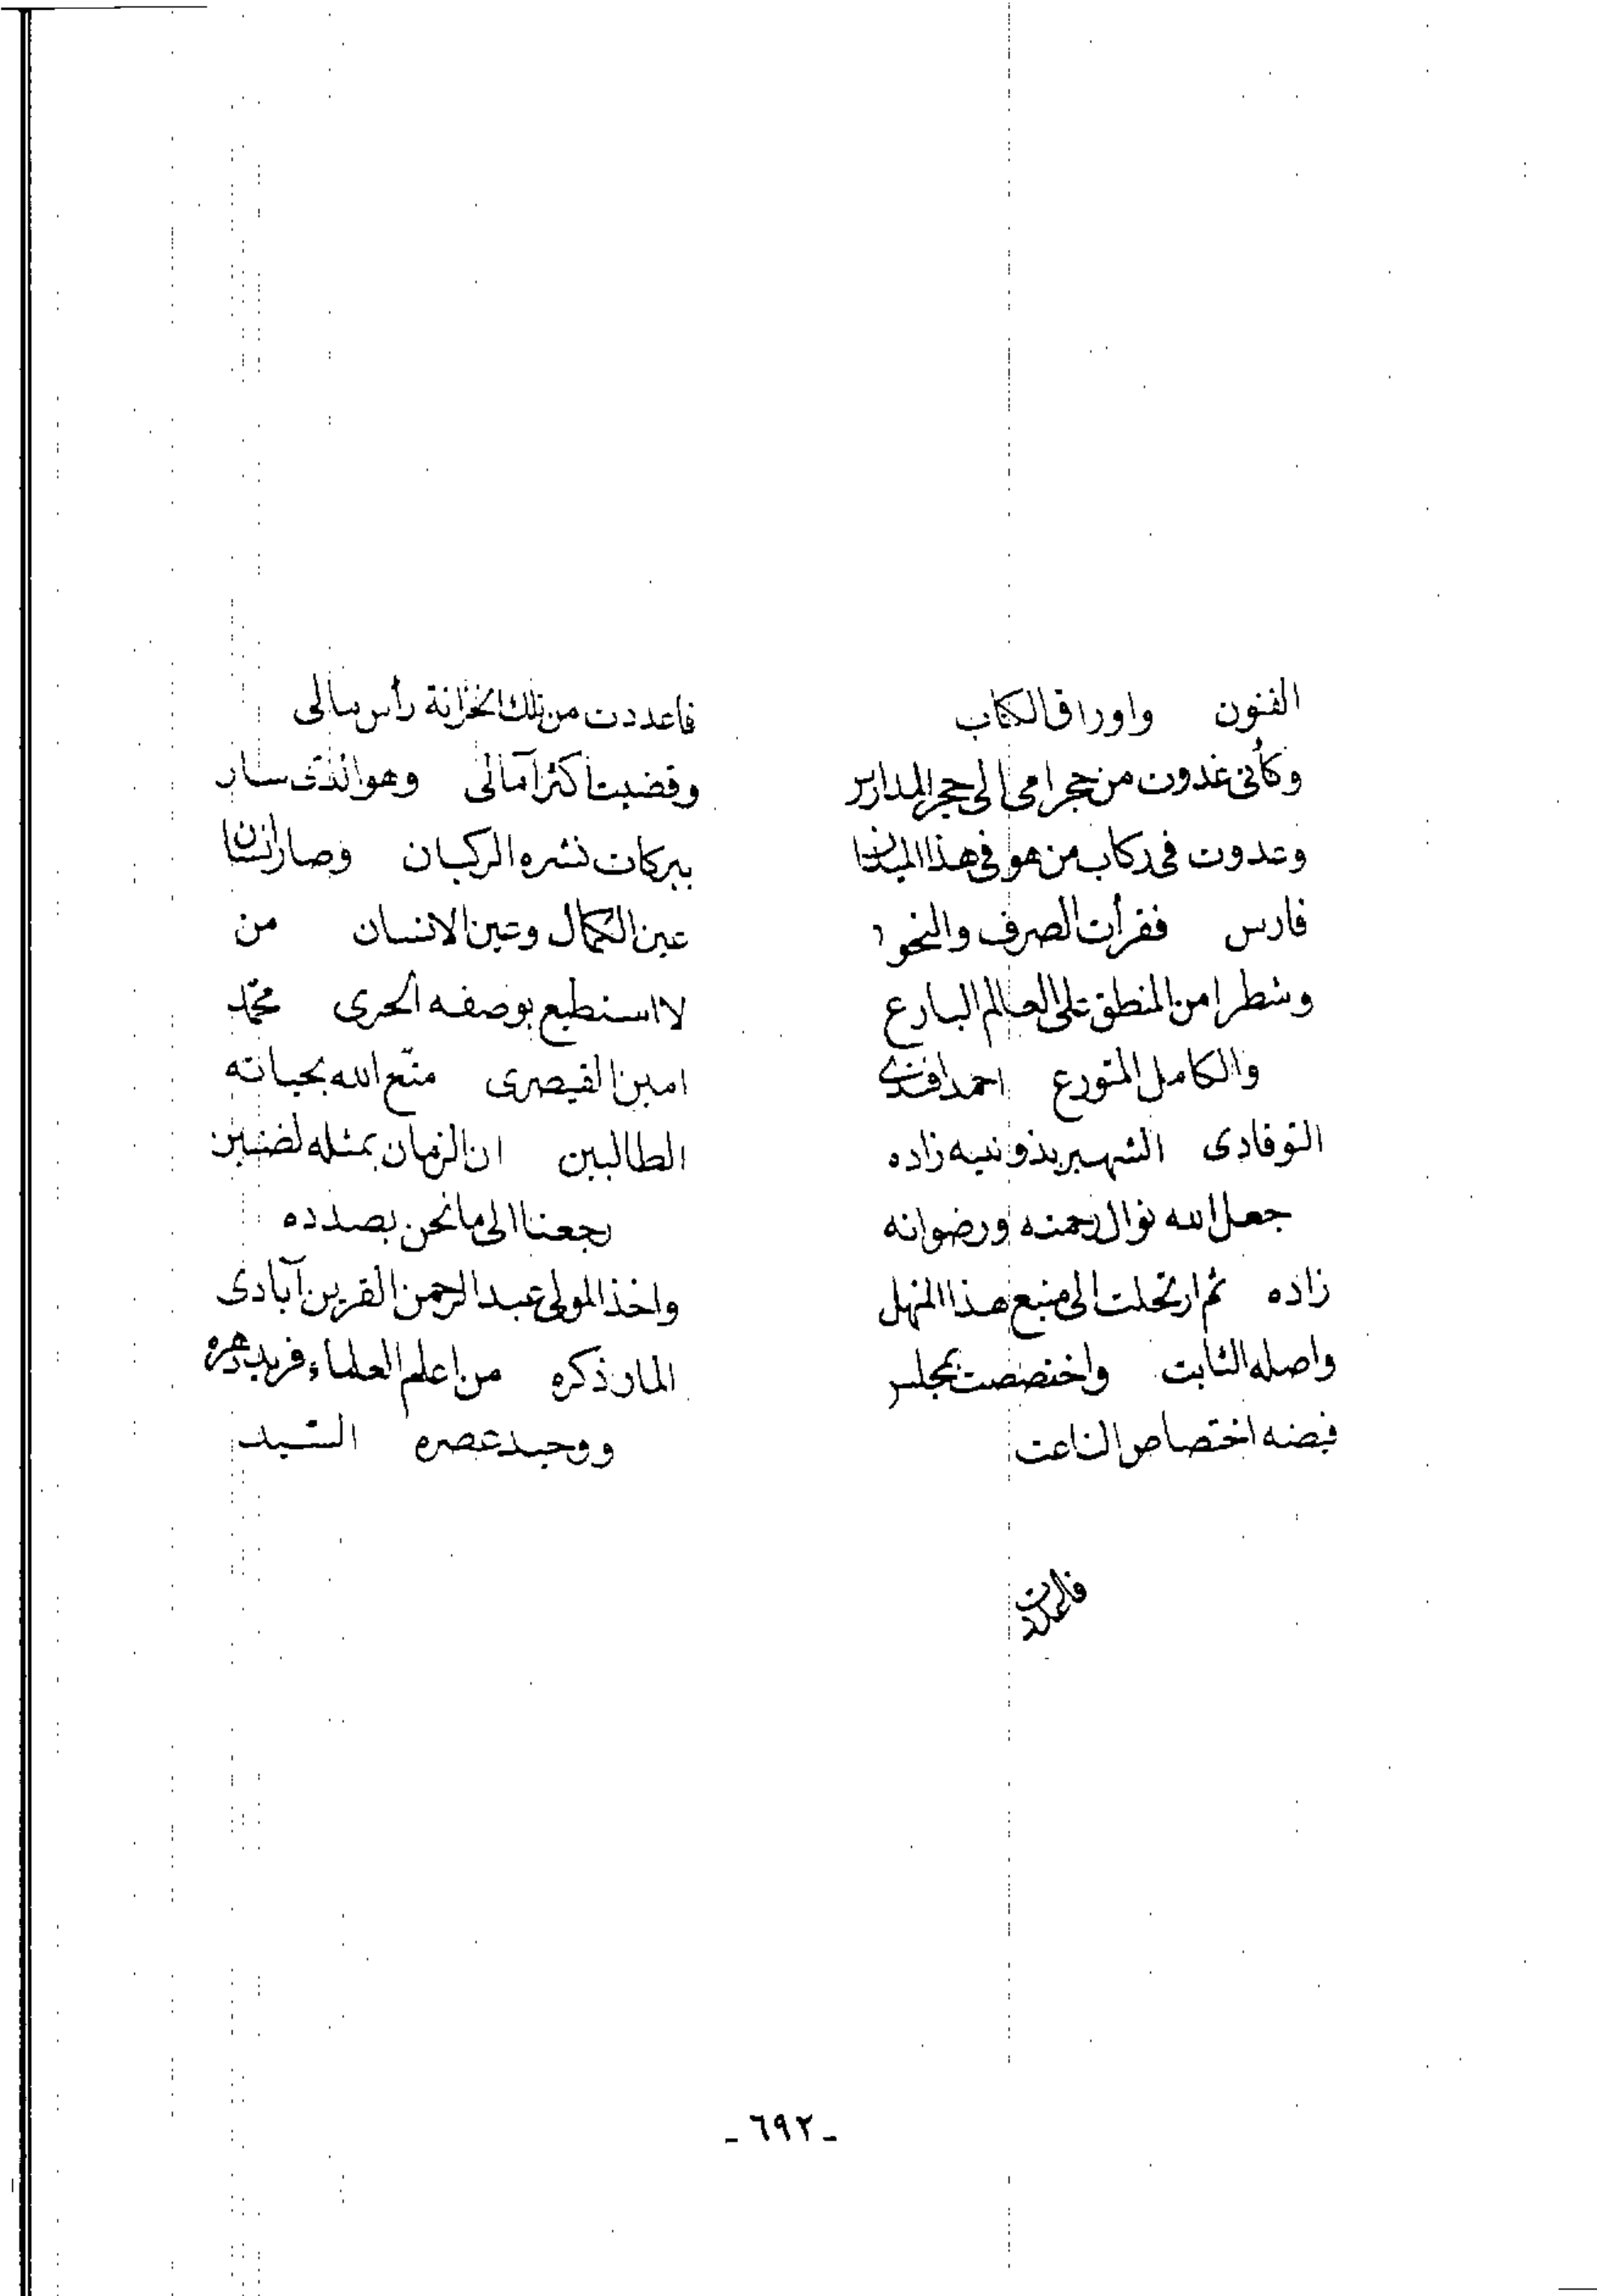 الفنون واوراق الكتاب
وكأنى غدوت من حجر امى الى حجر المدارس
وعدوت فى ركاب من هو فى هذا الميدان
فارس فقرأت الصرف والنحو
وشطرا من المنطق على العالم البارع
والكامل المتورع احمد افندى
التوقادى الشهير بذونيه زاده
جعل الله نوال رحمته ورضوانه
زاده ثم ارتحلت الى منبع هذا المنهل
واصله الثابت واختصصت بمجلس
فيضه اختصاص الناعت
فاعددت من تلك الخزانة رأس مالى
وقضيت اكثر آمالى وهو الذى سار
ببركات نشره الركبان وصار انسان
عين الكمال وعين الانسان من
لا استطيع بوصفه الحرى محمّد
امين القيصرى متّع الله بحياته
الطالبين ان الزمان بمثله لضنين
رجعنا الى ما نحن بصدده
واخذ المولى عبد الرحمن القرين آبادى
المار ذكره من اعلم العلماء فريد دهره
ووحيد عصره السّيد
فاعددت
- ٦٩٢ -